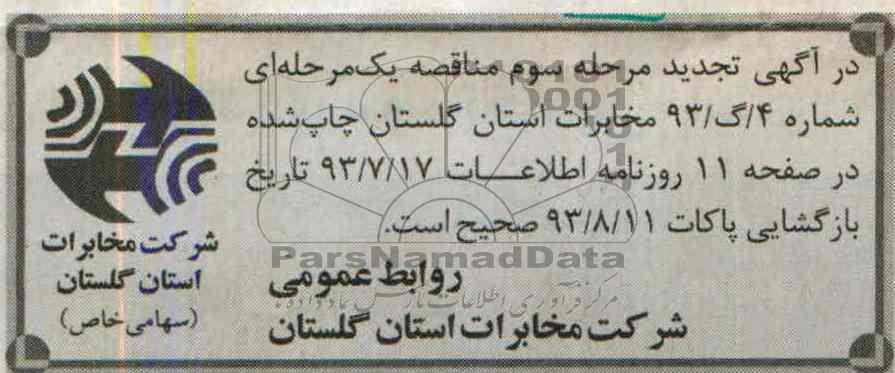 در آگهی تجدید مرحله سوم مناقصه یک‌مرحله‌ای
شماره ۴/گ/۹۳ مخابرات استان گلستان چاپ‌شده
در صفحه ۱۱ روزنامه اطلاعـــات ۹۳/۷/۱۷ تاریخ
بازگشایی پاکات ۹۳/۸/۱۱ صحیح است.
روابط عمومی
شرکت مخابرات استان گلستان
شرکت مخابرات
استان گلستان
(سهامی خاص)
ParsNamadData